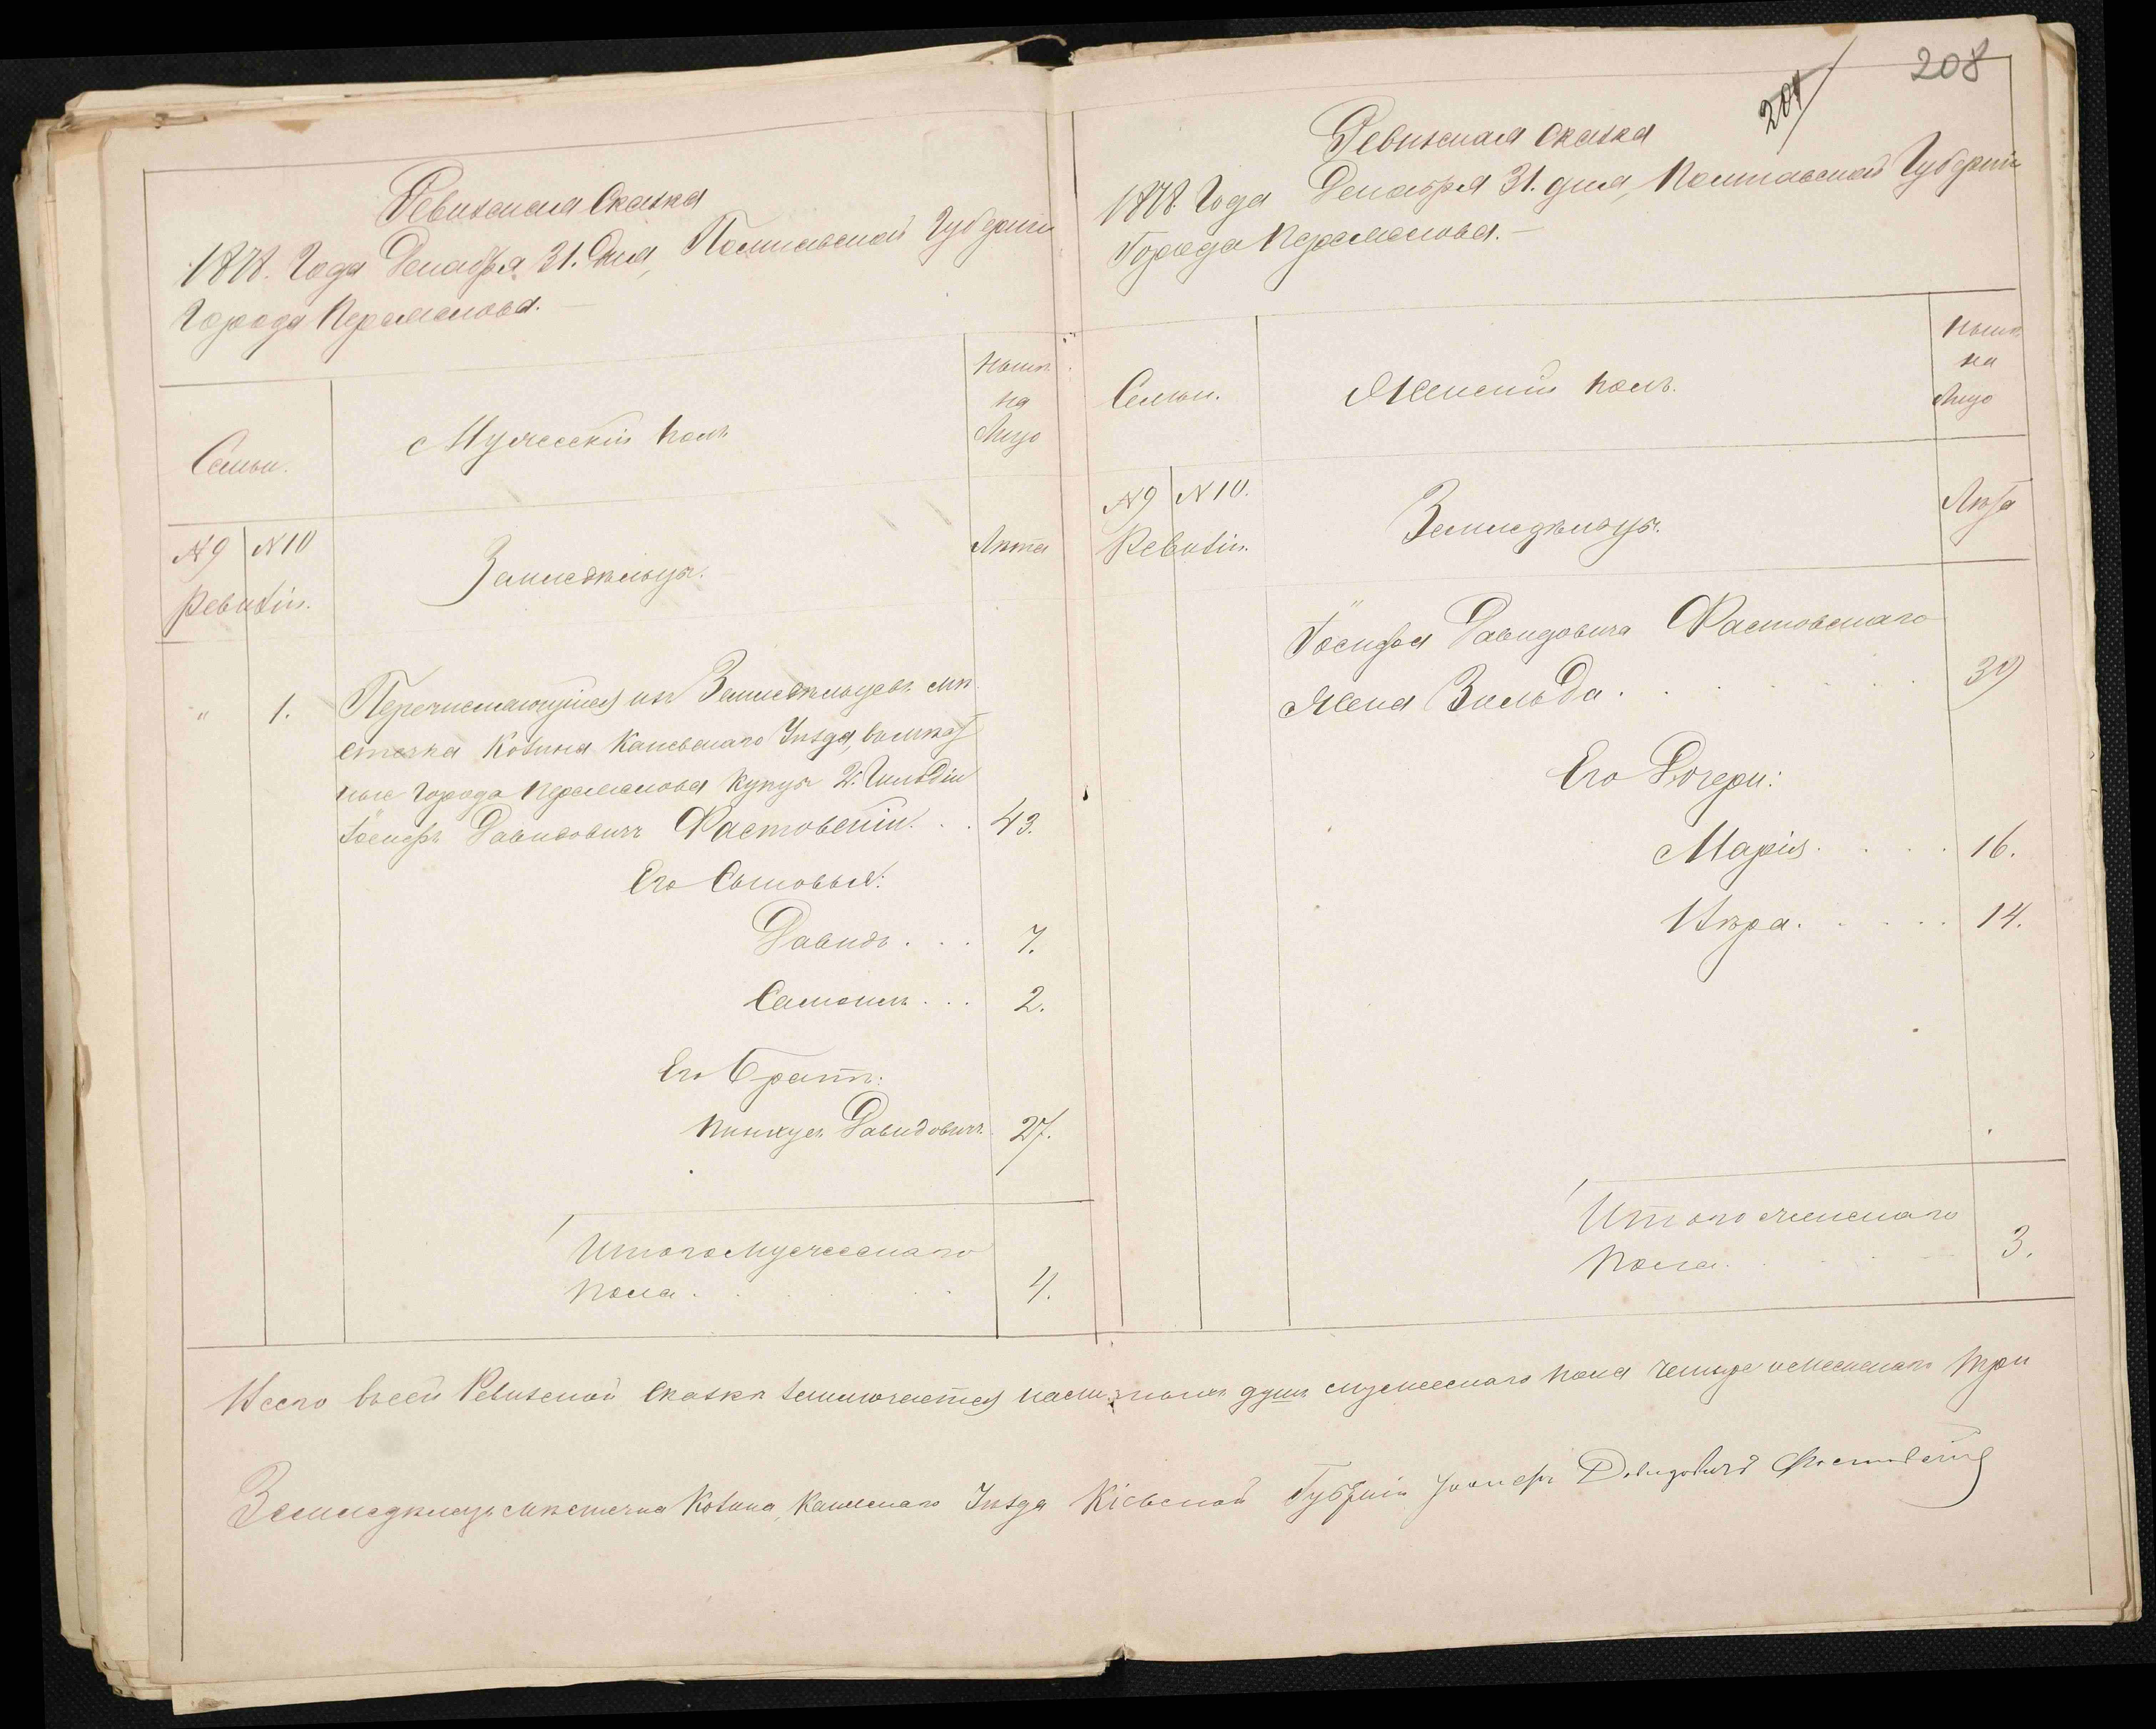 Ревизская Сказка
1878. Года Декабря 31. Дня, Полтавской Губерніи
Города Кременчова.
Семьи.
Мужескій полъ
Нынѣ
на
Лицо
№9 №10
Ревизіи.
Земледѣльцы.
Лѣта
" 1. Перечисляющійся изъ Земледѣльцевъ мѣ
стечка Козина Каневскаго Уѣзда,
города купцы 2й Гильдіи
Іосифъ Давидовичъ Фастовскій. . . 43.
Его Сыновья:
Давидъ . . . 7.
Самоилъ . . . 2.
Его Братъ:
Пинкусъ Давидовичъ 27.
Итого Мужескаго
пола . . . 4.
208
Ревизская Сказка
1878. Года Декабря 31. дня, Полтавской Губерніи
Города Кременчова.
Семьи.
Женскій полъ.
Нынѣ
на
Лицо
№9 №10.
Ревизіи.
Земледѣльцы.
Лѣта
Іосифа Давидовича Фастовскаго
Жена Зельда . . . 39
Его Дочери:
Марія . . . . 16.
Вѣра . . . . 14.
Итого женскаго
пола . . . 3.
Всего въ сей Ревизской Сказкѣ заключается душъ мужескаго пола четыре и женскаго три
Земледѣлецъ мѣстечка Козина, Каневскаго Уѣзда Кіевской Губерніи Іосифъ Давидовичъ Фастовскій